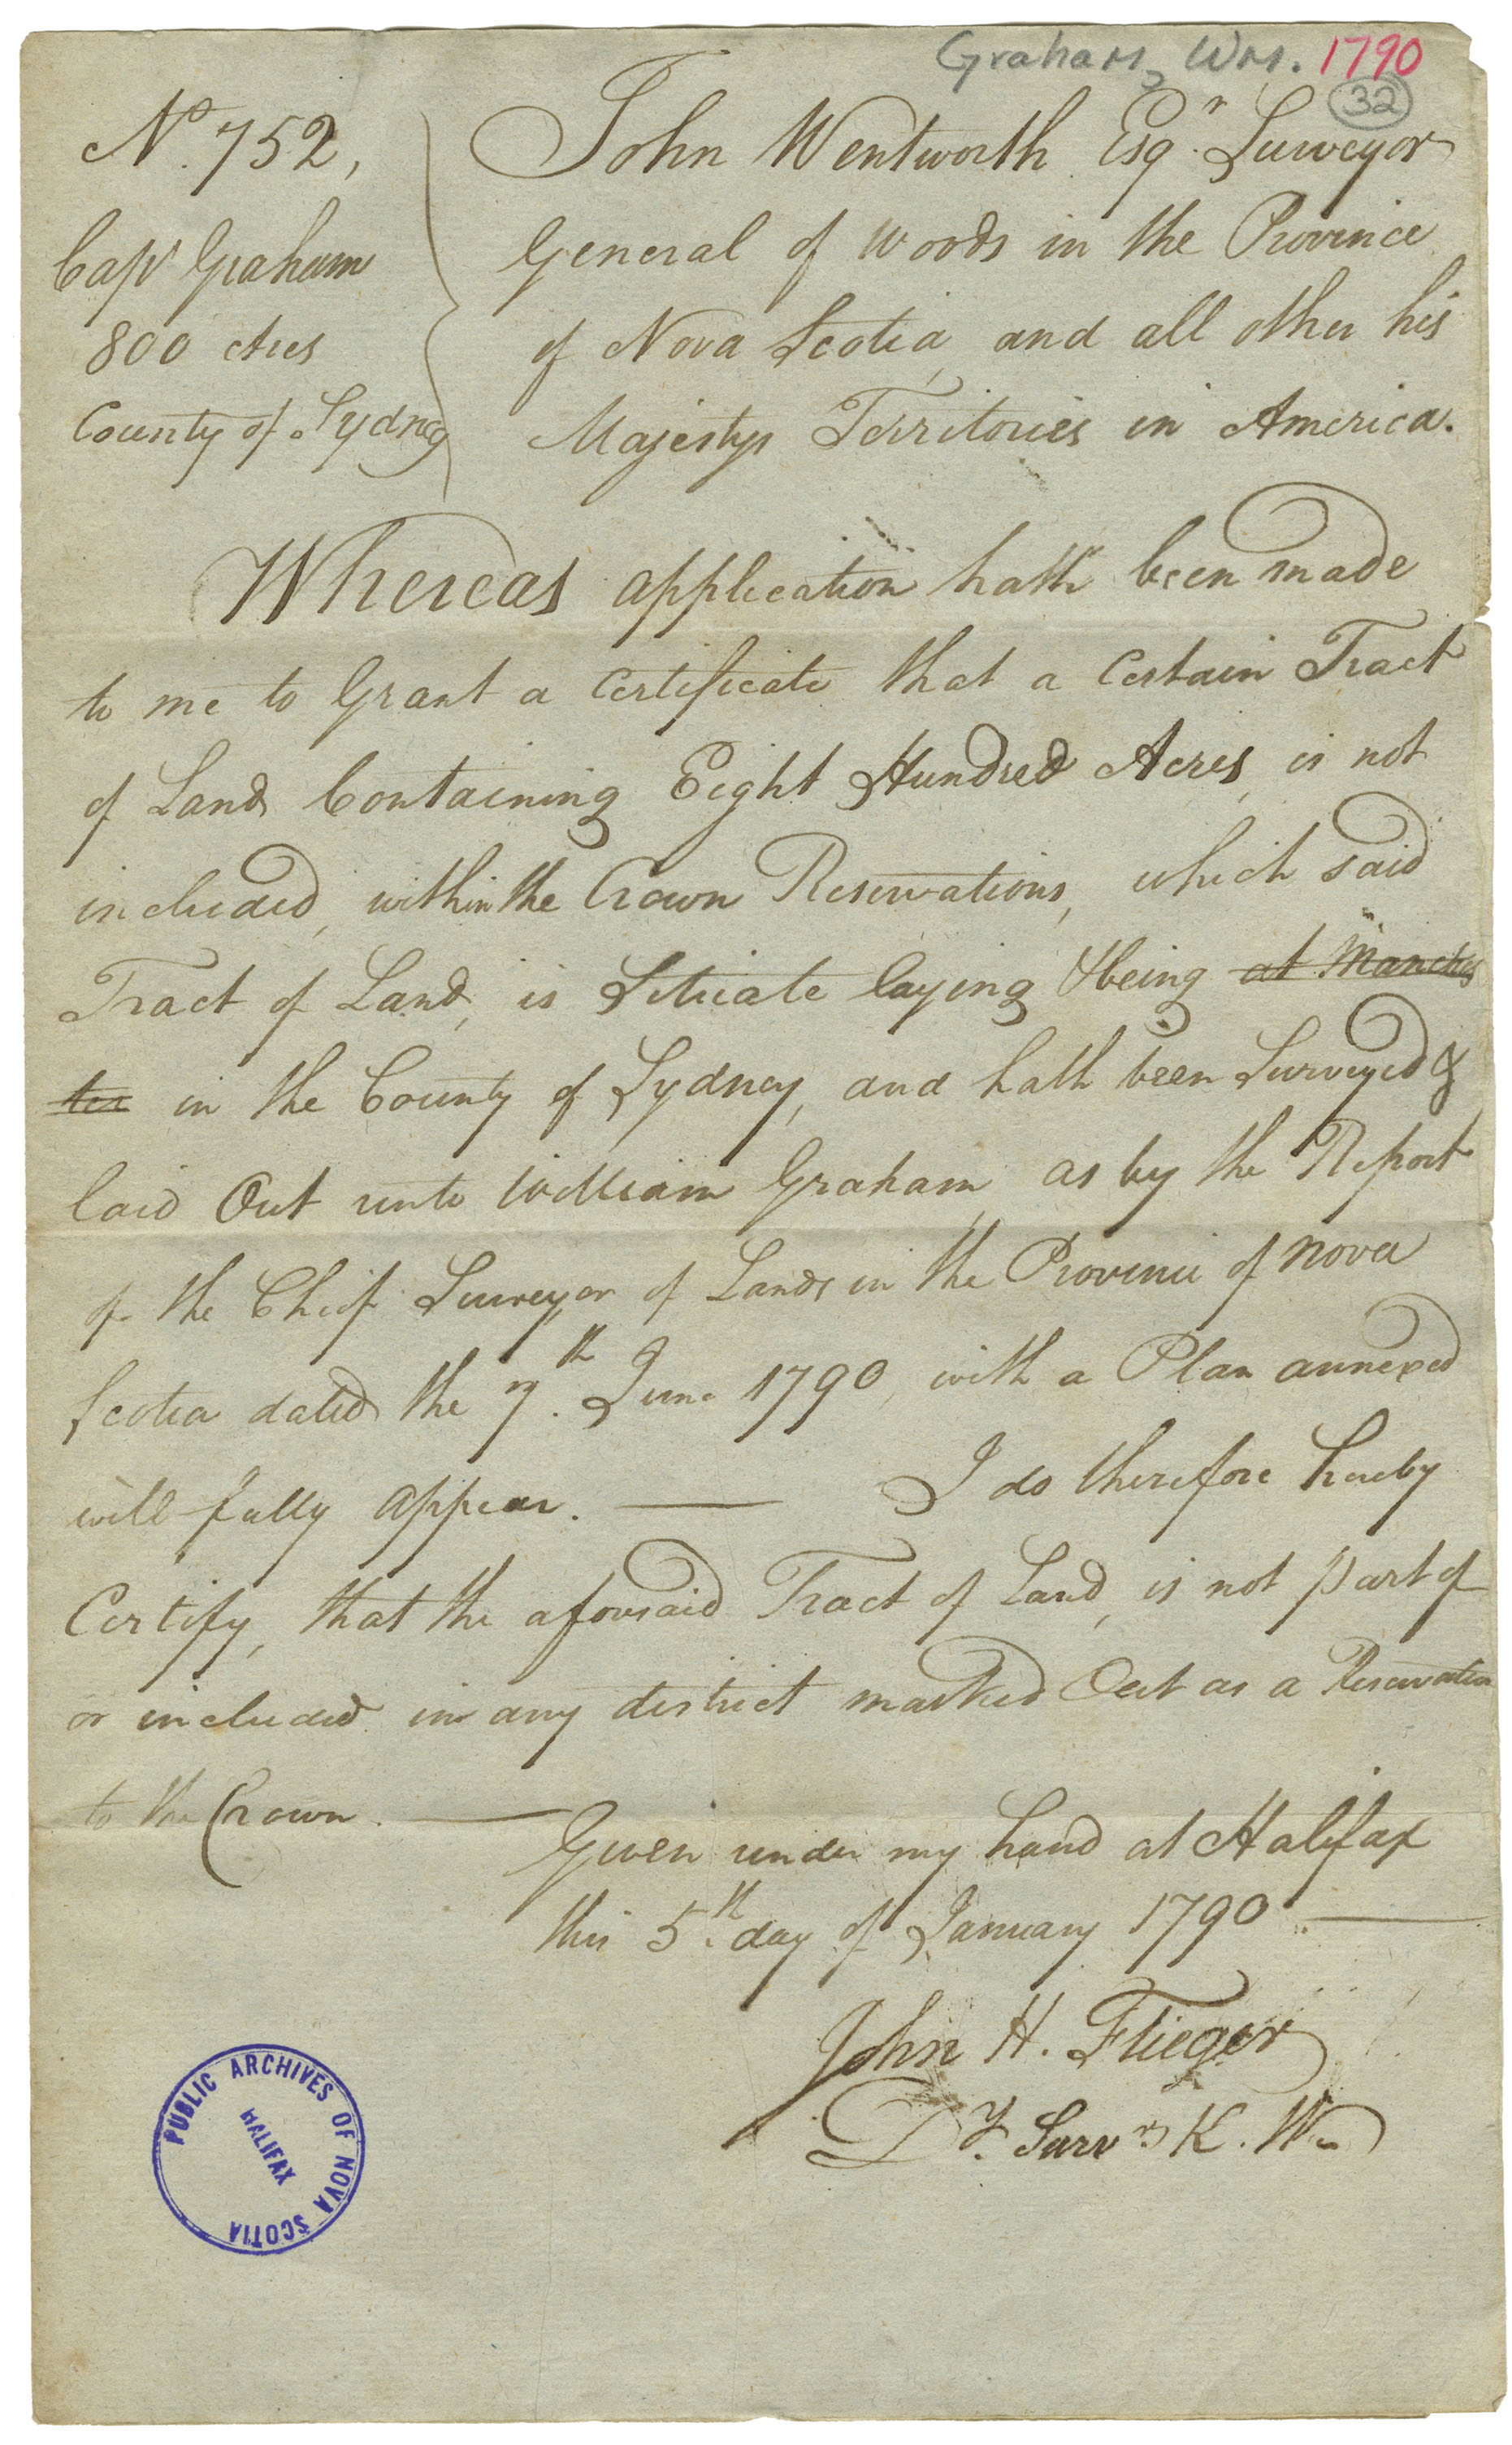 Graham, Wm. 1790
32
No. 752,
Capt Graham
800 Acres
County of Sydney
John Wentworth Esqr. Surveyor
General of Woods in the Province
of Nova Scotia, and all other his
Majestys Territories in America.
Whereas application hath been made
to me to Grant a Certificate that a Certain Tract
of Land Containing Eight Hundred Acres, is not
included, within the Crown Reservations, which said
Tract of Land, is Situate laying & being at Manches
ter in the County of Sydney, and hath been Surveyed &
laid Out unto William Graham, as by the Report
of the Chief Surveyor of Lands in the Province of Nova
Scotia dated the 7th. June 1790, with a Plan annexed
will fully appear. — I do therefore hereby
Certify, that the aforesaid Tract of Land, is not part of
or included in any district marked Out as a Reservation
to the Crown. —
Given under my hand at Halifax
this 5th. day of January 1790. —
John H. Flieger
Dy. Survr. K. Ws
PUBLIC ARCHIVES OF NOVA SCOTIA
HALIFAX